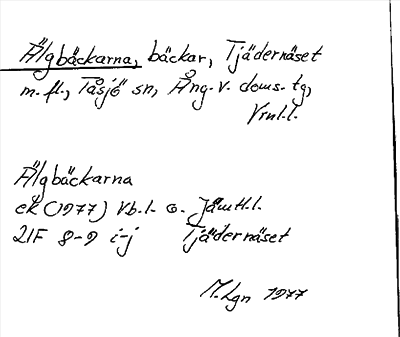 Älgbäckarna, bäckar, Tjädernäset
m.fl., Tåsjö sn, Ång.v. doms. tg,
Vrnl.l.
Älgbäckarna
ek (1977) Vb.l. o. Jämtl.l.
21F 8-9 i-j Tjädernäset
M.Lgn 1977